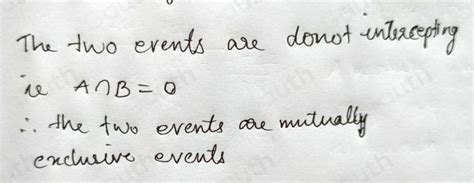 The two events are donot intersepting
ie A∩B = 0
∴ the two events are mutually
exclusive events